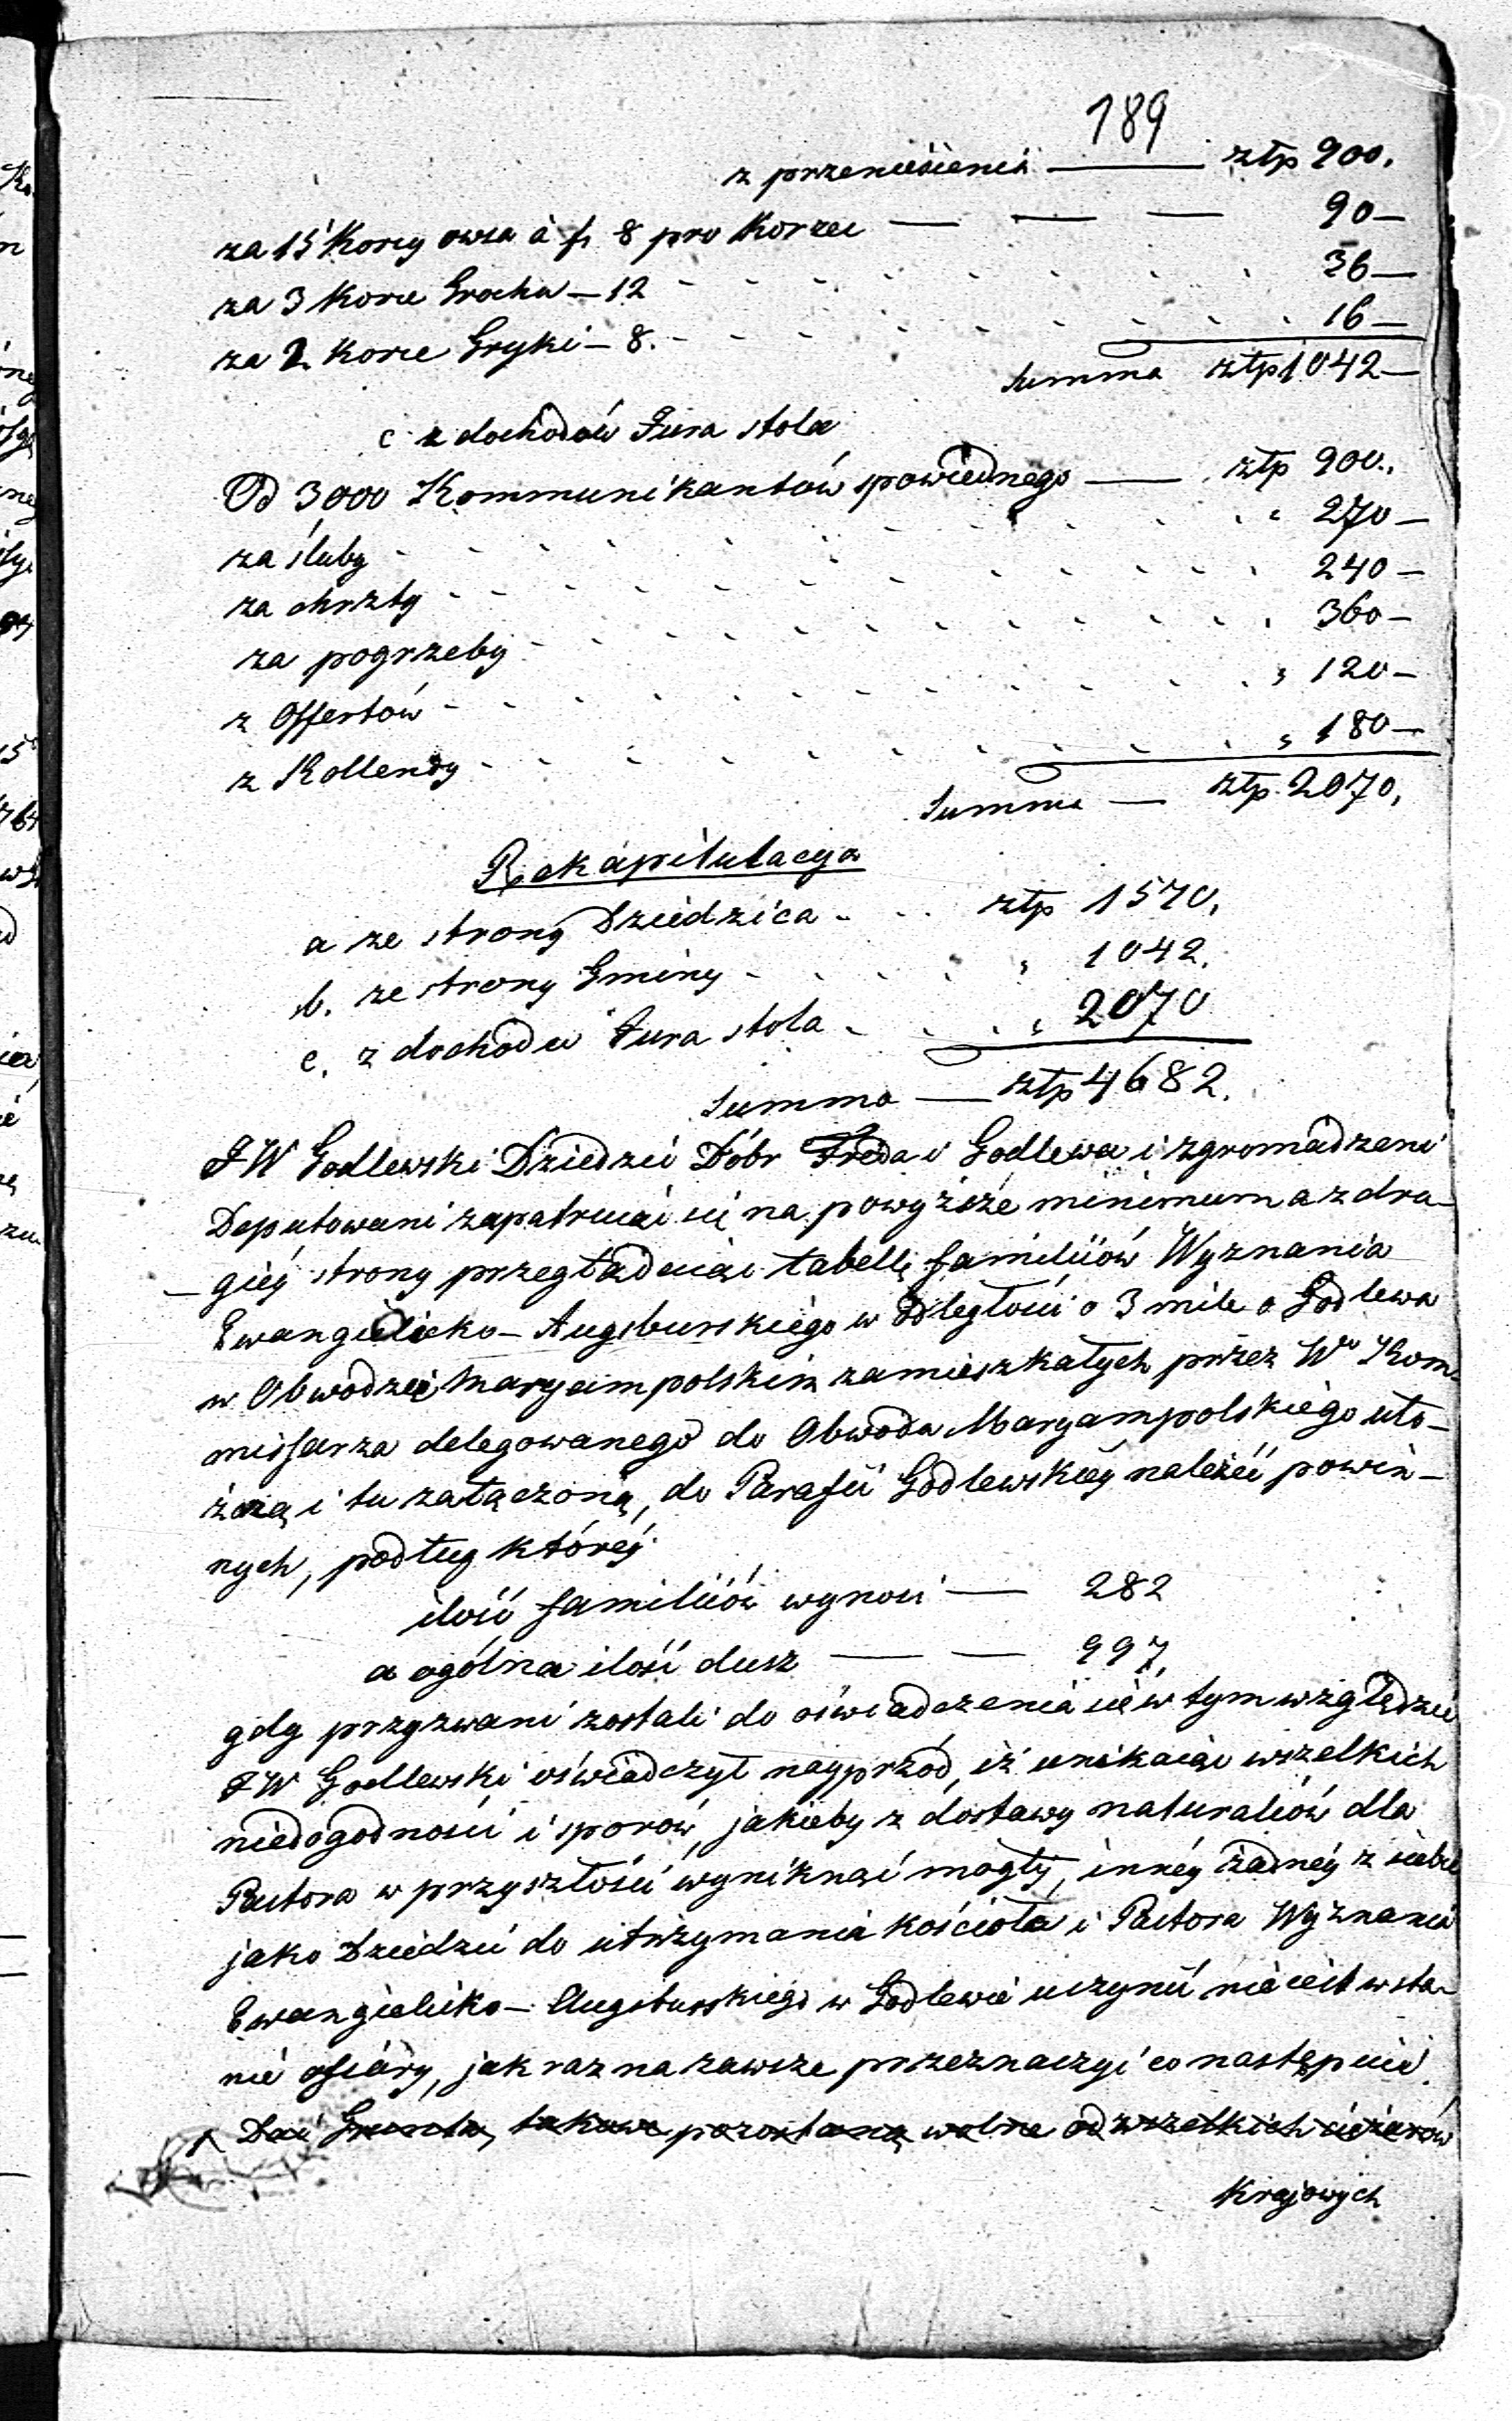 189
z przeniesienia — złp 900.
za 15 Korcy owsa à fl 8 pro Korzec — — — 90 —
za 3 Korce Grochu — 12 - - - 36 —
za 2 korce Gryki — 8. - - - 16 —
Summa złp 1042 —
c z dochodów Jura stolæ
Od 3000 Kommunikantów spowiednego — złp 900.
za śluby - - - 270 —
za chrzty - - - 240 —
za pogrzeby - - - 360 —
z Offertów - - - 120 —
z Kollendy - - - 180 —
Summa — złp. 2070.
Rekapitulacya
a ze strony Dziedzica - - złp 1570.
b. ze strony Gminy - - - 1042.
c. z dochodu Jura stola - - - 2070
Summa — złp 4682.
JW Godlewski Dziedzic Dóbr Freda i Godlewa i zgromadzeni
Deputowani zapatruiąc się na powyższe minimum a z dru-
giéy strony przeglądaiąc tabellę familiów Wyznania
Ewangielicko-Augsburskiego w odległości o 3 mile o Godlewa
w Obwodzie Maryampolskim zamieszkałych przez Wo Kom-
missarza delegowanego do Obwodu Maryampolskiego uło-
żoną i tu załączoną, do Parafii Godlewskiéy należéć powin-
nych, podług któréy
ilość familiów wynosi — 282
a ogólna ilość dusz — — 997,
gdy przyzwani zostali do oświadczenia się w tym względzie
JW Godlewski oświadczył nayprzód, iż unikaiąc wszelkich
niedogodności i sporów, jakieby z dostawy naturaliów dla
Pastora w przyszłości wyniknąć mogły, innéy żadnéy z siebie
jako Dziedzic do utrzymania kościoła i Pastora Wyznania
Ewangielicko-Augsburskiego w Godlewie uczynić nie iest w sta-
nie ofiary, jak raz na zawsze przeznaczyć co następuie.
1 Dać Grunta, takowe pozostaną wolne od wszelkich ciężarów
Krajowych